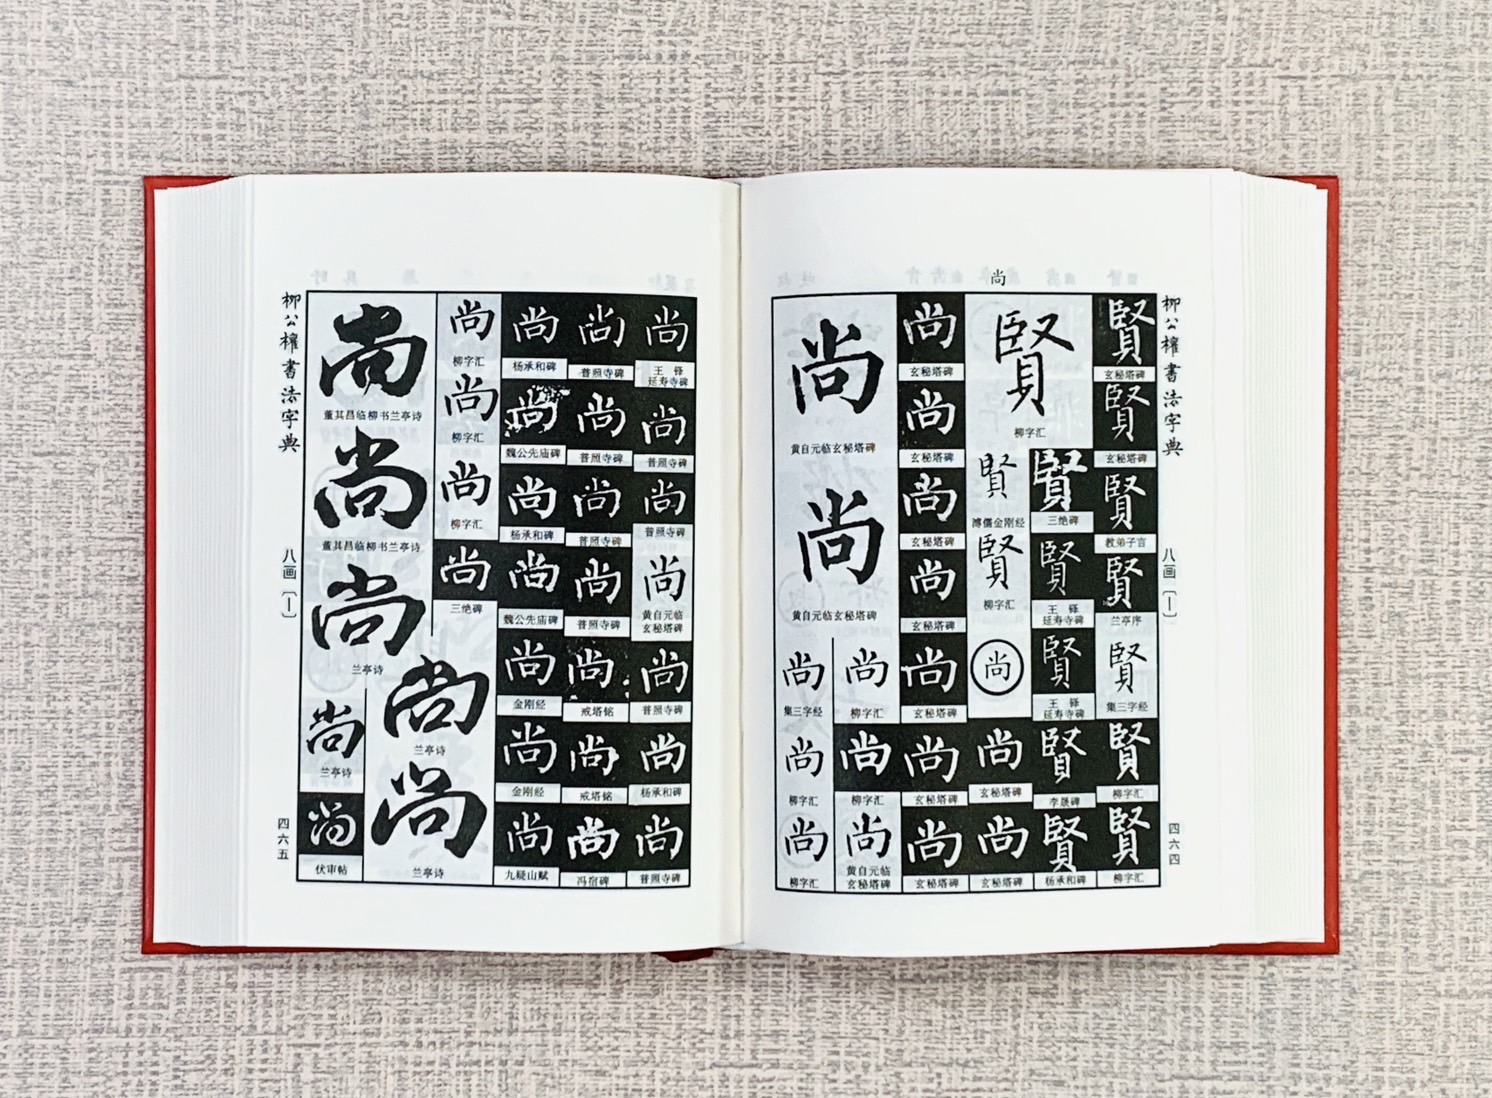 尚
柳公權書法字典
八画〔丨〕
四六四
賢
玄秘塔碑
賢
玄秘塔碑
賢
教弟子言
賢
兰亭序
賢
集三字经
賢
柳字汇
賢
柳字汇
賢
柳字汇
賢
三绝碑
賢
王铎
延寿寺碑
賢
王铎
延寿寺碑
賢
李晟碑
賢
杨承和碑
賢
溥儒金刚经
賢
柳字汇
尚
尚
玄秘塔碑
尚
玄秘塔碑
尚
玄秘塔碑
尚
玄秘塔碑
尚
玄秘塔碑
尚
玄秘塔碑
尚
玄秘塔碑
尚
玄秘塔碑
尚
玄秘塔碑
尚
黄自元临玄秘塔碑
尚
黄自元临玄秘塔碑
尚
柳字汇
尚
柳字汇
尚
黄自元临
玄秘塔碑
尚
集三字经
尚
柳字汇
尚
柳字汇
尚
王铎
延寿寺碑
尚
普照寺碑
尚
普照寺碑
尚
黄自元临
玄秘塔碑
尚
普照寺碑
尚
杨承和碑
尚
普照寺碑
尚
普照寺碑
尚
普照寺碑
尚
普照寺碑
尚
普照寺碑
尚
戒塔铭
尚
戒塔铭
尚
冯宿碑
尚
杨承和碑
尚
魏公先庙碑
尚
杨承和碑
尚
魏公先庙碑
尚
金刚经
尚
金刚经
尚
九疑山赋
尚
柳字汇
尚
柳字汇
尚
柳字汇
尚
三绝碑
尚
兰亭诗
尚
兰亭诗
尚
董其昌临柳书兰亭诗
尚
董其昌临柳书兰亭诗
尚
兰亭诗
尚
兰亭诗
尚
伏审帖
柳公權書法字典
八画〔丨〕
四六五